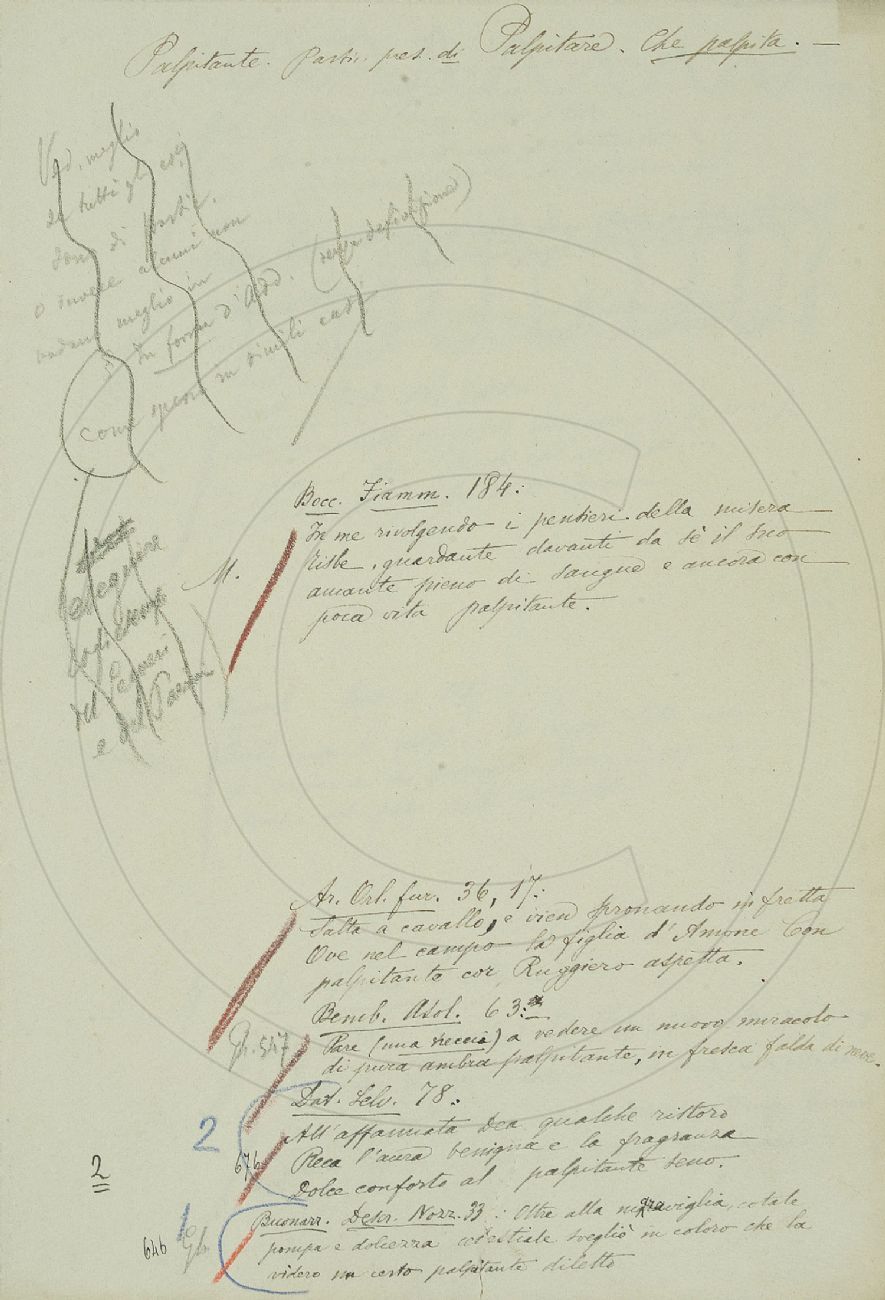 Palpitante. Partic. pres. di Palpitare. Che palpita. —
Ved. meglio
se tutti gli
di
o invece alcuni non
vadano meglio in
In forma d'Add. (senza definizione)
Come spesso in simili casi
M.
Bocc. Fiamm. 184:
In me rivolgendo i pensieri della misera
Tisbe, guardante davanti da sè il suo
amante pieno di sangue e ancora con
poca vita palpitante.
eseguire
del Segneri
e del
Ar. Orl. fur. 36, 17:
Salta a cavallo, e vien spronando in fretta
Ove nel campo la figlia d'Amone Con
palpitante cor Ruggiero aspetta.
Bemb. Asol. 63:
Gh. 547
Pare (una treccia) a vedere un nuovo miracolo
di pura ambra palpitante, in fresca falda di neve.
Dat. Selv. 78:
2
All'affannata Dea qualche ristoro
2
676
Reca l'aura benigna e la fragranza
Dolce conforto al palpitante seno.
1
Buonarr. Descr. Nozz. 33: Oltre alla maraviglia, cotale
646
Gh.
pompa e dolcezza celestiale svegliò in coloro che la
videro un certo palpitante diletto